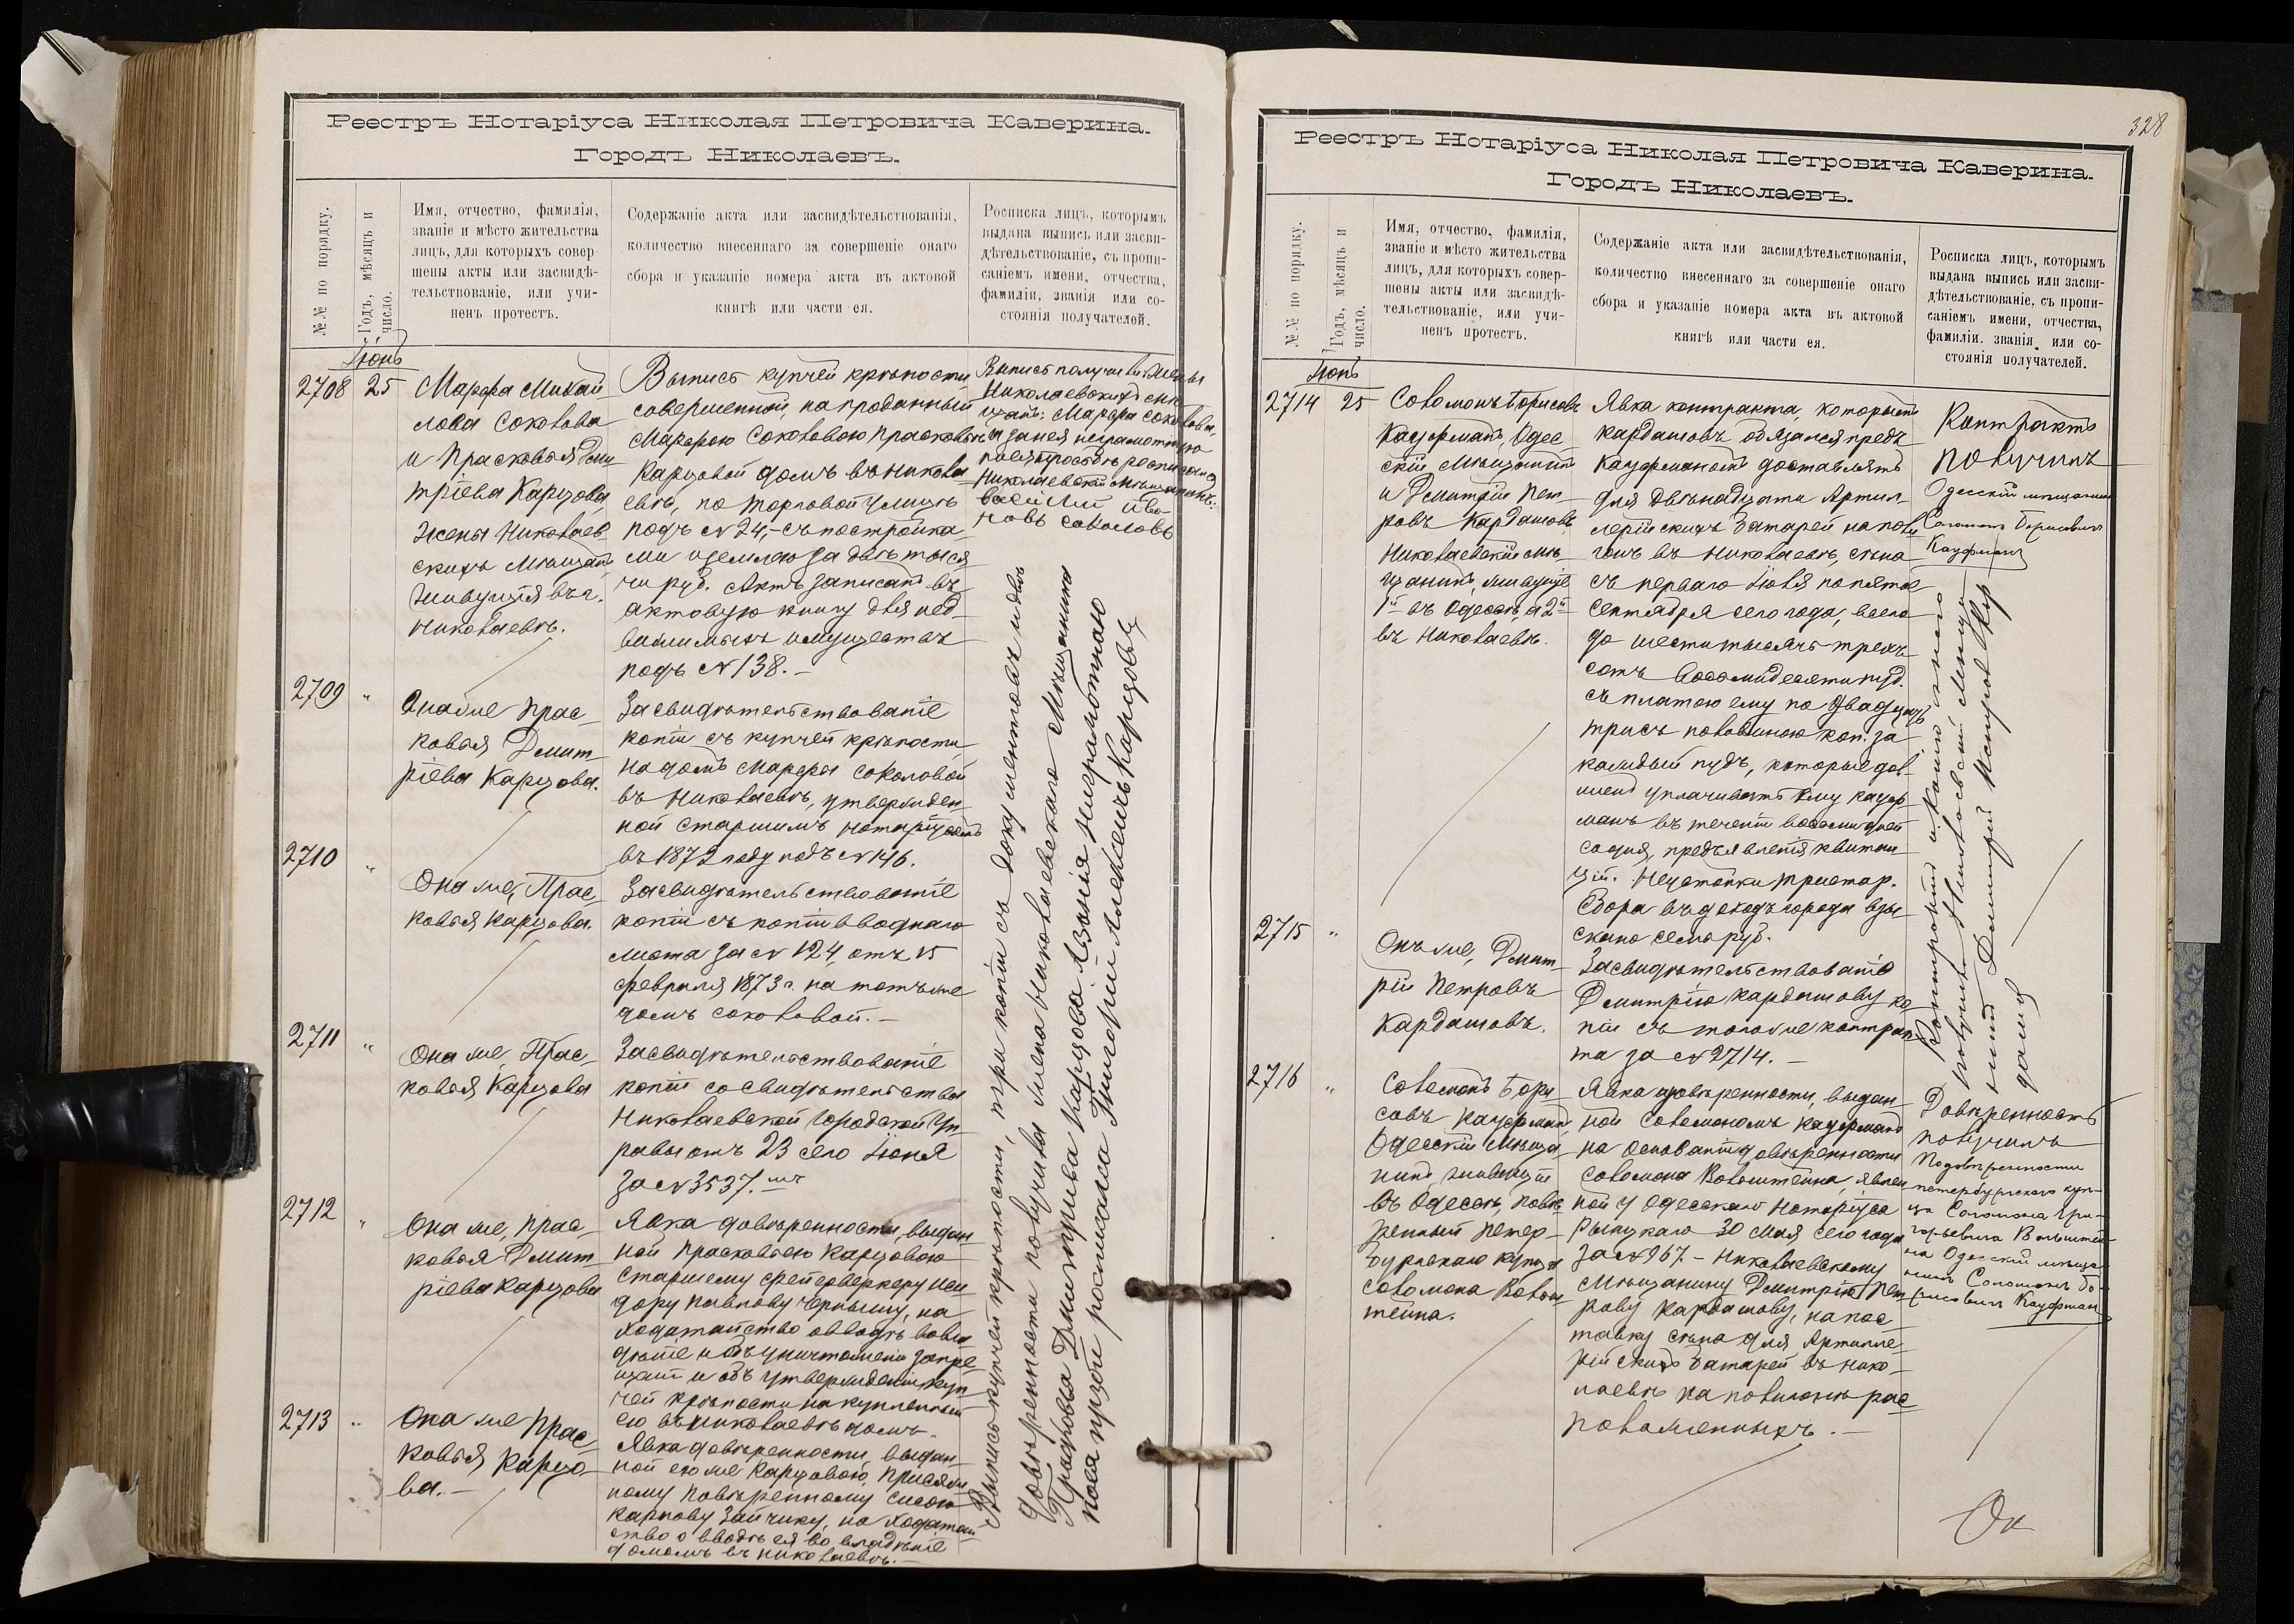 Реестръ Нотаріуса Николая Петровича Каверина.
Городъ Николаевъ.
№№ по порядку.
Годъ, мѣсяцъ и
число.
Имя, отчество, фамилія,
званіе и мѣсто жительства
лицъ, для которыхъ совер-
шены акты или засвидѣ-
тельствованіе, или учи-
ненъ протестъ.
Содержаніе акта или засвидѣтельствованія,
количество внесеннаго за совершеніе онаго
сбора и указаніе номера акта въ актовой
книгѣ или части ея.
Росписка лицъ, которымъ
выдана выпись или засви-
дѣтельствованіе, съ пропи-
саніемъ имени, отчества,
фамиліи, званія или со-
стоянія получателей.
Іюнь
2708 25
Марфа Михай
лова Соколова
и Прасковья Дми
тріева Карцова,
жены Николаев
скихъ мѣщанъ,
живущія въ г.
Николаевѣ.
Выпись купчей крѣпости
совершенной, на проданный
Марфою Соколовою Прасковьи
Карцовой домъ въ Никола
евѣ, по Торговой улицѣ
подъ № 24,– съ постройка
ми и землею за двѣ тыся
чи руб. Актъ записанъ въ
актовую книгу для нед
вижимыхъ имуществъ
подъ № 138.–
Выпись получили жены
Николаевскихъ мѣ
щанъ: Марфа Соколова,
а за нея неграмотную
по ея просьбѣ росписался
Николаевскій мѣщанинъ:
Василій Ива
новъ Соколовъ
2709 "
Она же Прас
ковья Дмит
ріева Карцова.
Засвидѣтельствованіе
копіи съ купчей крѣпости
на домъ Марфы Соколовой
въ Николаевѣ, утвержден
ной Старшимъ Нотаріусомъ
въ 1872 году подъ № 146.
2710 "
Она же, Прас
ковья Карцова.
Засвидѣтельствованіе
копіи съ копіи вводнаго
листа за № 124, отъ 15
февраля 1873 г. на тотъ же
домъ Соколовой.–
2711 "
Она же, Прас
ковья Карцова
Засвидѣтельствованіе
копіи со свидѣтельства
Николаевской Городской Уп
равы отъ 23 сего Іюня
за № 3537.
2712 "
Она же, Прас
ковья Дмит
ріева Карцова
Явка довѣренности, выдан
ной Прасковьею Карцовою
Старшему фейерверкеру Иси
дору Павлову Чернышу, на
ходатайство о вводѣ во вла
дѣніе и объ уничтоженіи запре
щенія и объ утвержденіи куп
чей крѣпости на купленный
ею въ Николаевѣ домъ.
2713 "
Она же Прас
ковья Карцо
ва.–
Явка довѣренности, выдан
ной ею же Карцовою, присяж
ному повѣренному
Карпову Зайчику, на ходатай
ство о вводѣ ея во владѣніе
домомъ въ Николаевѣ.–
Выпись купчей крѣпости, три копіи съ документовъ и двѣ
довѣренности получила жена Николаевскаго Мѣщанина
Прасковья Дмитріева Карцова А за нія ниграмотною
поея прозбѣ росписался Григорій Алексеичъ Карцовъ
328
Реестръ Нотаріуса Николая Петровича Каверина.
Городъ Николаевъ.
№№ по порядку.
Годъ, мѣсяцъ и
число.
Имя, отчество, фамилія,
званіе и мѣсто жительства
лицъ, для которыхъ совер-
шены акты или засвидѣ-
тельствованіе, или учи-
ненъ протестъ.
Содержаніе акта или засвидѣтельствованія,
количество внесеннаго за совершеніе онаго
сбора и указаніе номера акта въ актовой
книгѣ или части ея.
Росписка лицъ, которымъ
выдана выпись или засви-
дѣтельствованіе, съ пропи-
саніемъ имени, отчества,
фамиліи. званія. или со-
стоянія получателей.
Іюнь
2714 25
Соломонъ Борисовъ
Кауфманъ, Одес
скій Мѣщанинъ
и Дмитрій Пет
ровъ Кардашовъ,
Николаевскій мѣ
щанинъ, живущіе
1й въ Одессѣ, а 2й
въ Николаевѣ.
Явка контракта, которымъ
Кардашовъ обязался предъ
Кауфманомъ доставлять
для двѣнадцати Артил
лерійскихъ батарей на полу
гонъ въ Николаевѣ, сѣна
съ перваго Іюля по пятое
Сентября сего года, всего
до шести тысячъ трехъ
сотъ восьмидесяти пуд.
съ платою ему по двадцать
три съ половиною коп. за
каждый пудъ, которые дол
женъ уплачивать ему Кауф
манъ въ теченіи восьми дней
со дня, предъявленія квитан
цій. Неустойки триста р.
Сбора въ доходъ города взы
скано семь руб.
Контрактъ
получилъ
Одесскій мѣщанинъ
Соломонъ Борисовичъ
Кауфманъ
2715 "
Онъ же, Дмит
рій Петровъ
Кардашовъ.
Засвидѣтельствованіе
Дмитрію Кардашову ко
піи съ того же контрак
та за № 2714.–
2716 "
Соломонъ Бори
совъ Кауфманъ,
Одесскій мѣща
нинъ, живущій
въ Одессѣ, повѣ
ренный Петер
бургскаго купца
Соломона Вольш
тейна.
Явка довѣренности, выдан
ной Соломономъ Кауфманъ
на основаніи довѣренности
Соломона Вольштейна, явлен
ной у Одесскаго Нотаріуса
30 Мая сего года
за № 967.– Николаевскому
Мѣщанину Дмитрію Пет
рову Кардашову, на пос
тавку сѣна для Артилле
рійскихъ батарей въ Нико
лаевѣ на полигонѣ рас
положенныхъ.–
Довѣренность
получилъ
По довѣренности
петербургскаго куп
ца Соломона Гри
горьевича Вольштей
на Одесскій мѣща
нинъ Соломонъ Бо
рисовичъ Кауфман